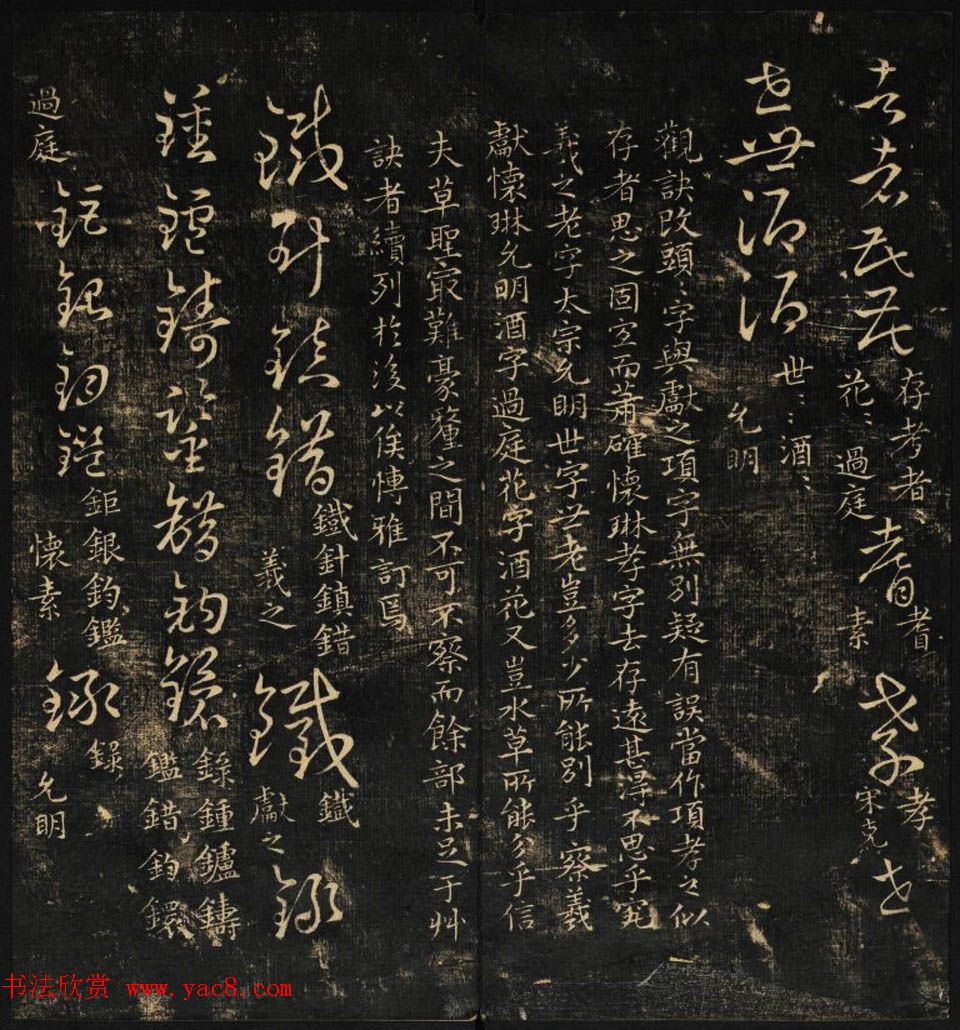 者者花花 存考者〻花〻 過庭 耆 耆 素 孝 孝 宋克 世
世世酒酒 世〻〻酒〻 允明
觀訣改頭〻字與獻之項字無別疑有誤當作項孝之似
存者思之固宜而蕭確懷琳孝字去存遠甚淂不思乎究
羲之老字太宗允明世字世老豈多少所能別乎察羲
獻懷琳允明酒字過庭花字酒花又豈水草所能多乎信
夫草聖㝡難豪釐之間不可不察而餘部未足于艸
訣者續列於後以俟博雅訂焉
鐵針鎮錯 鐵針鎮錯 羲之 鐵 鐵 獻之 錄
鍾鑪鑄鑑錯鈞鐶 錄鍾鑪鑄鑑錯鈞鐶
過庭 鉅銀鈞鑑 鉅銀鈞鑑 懷素 錄 錄 允明
书法欣赏 www.yac8.com